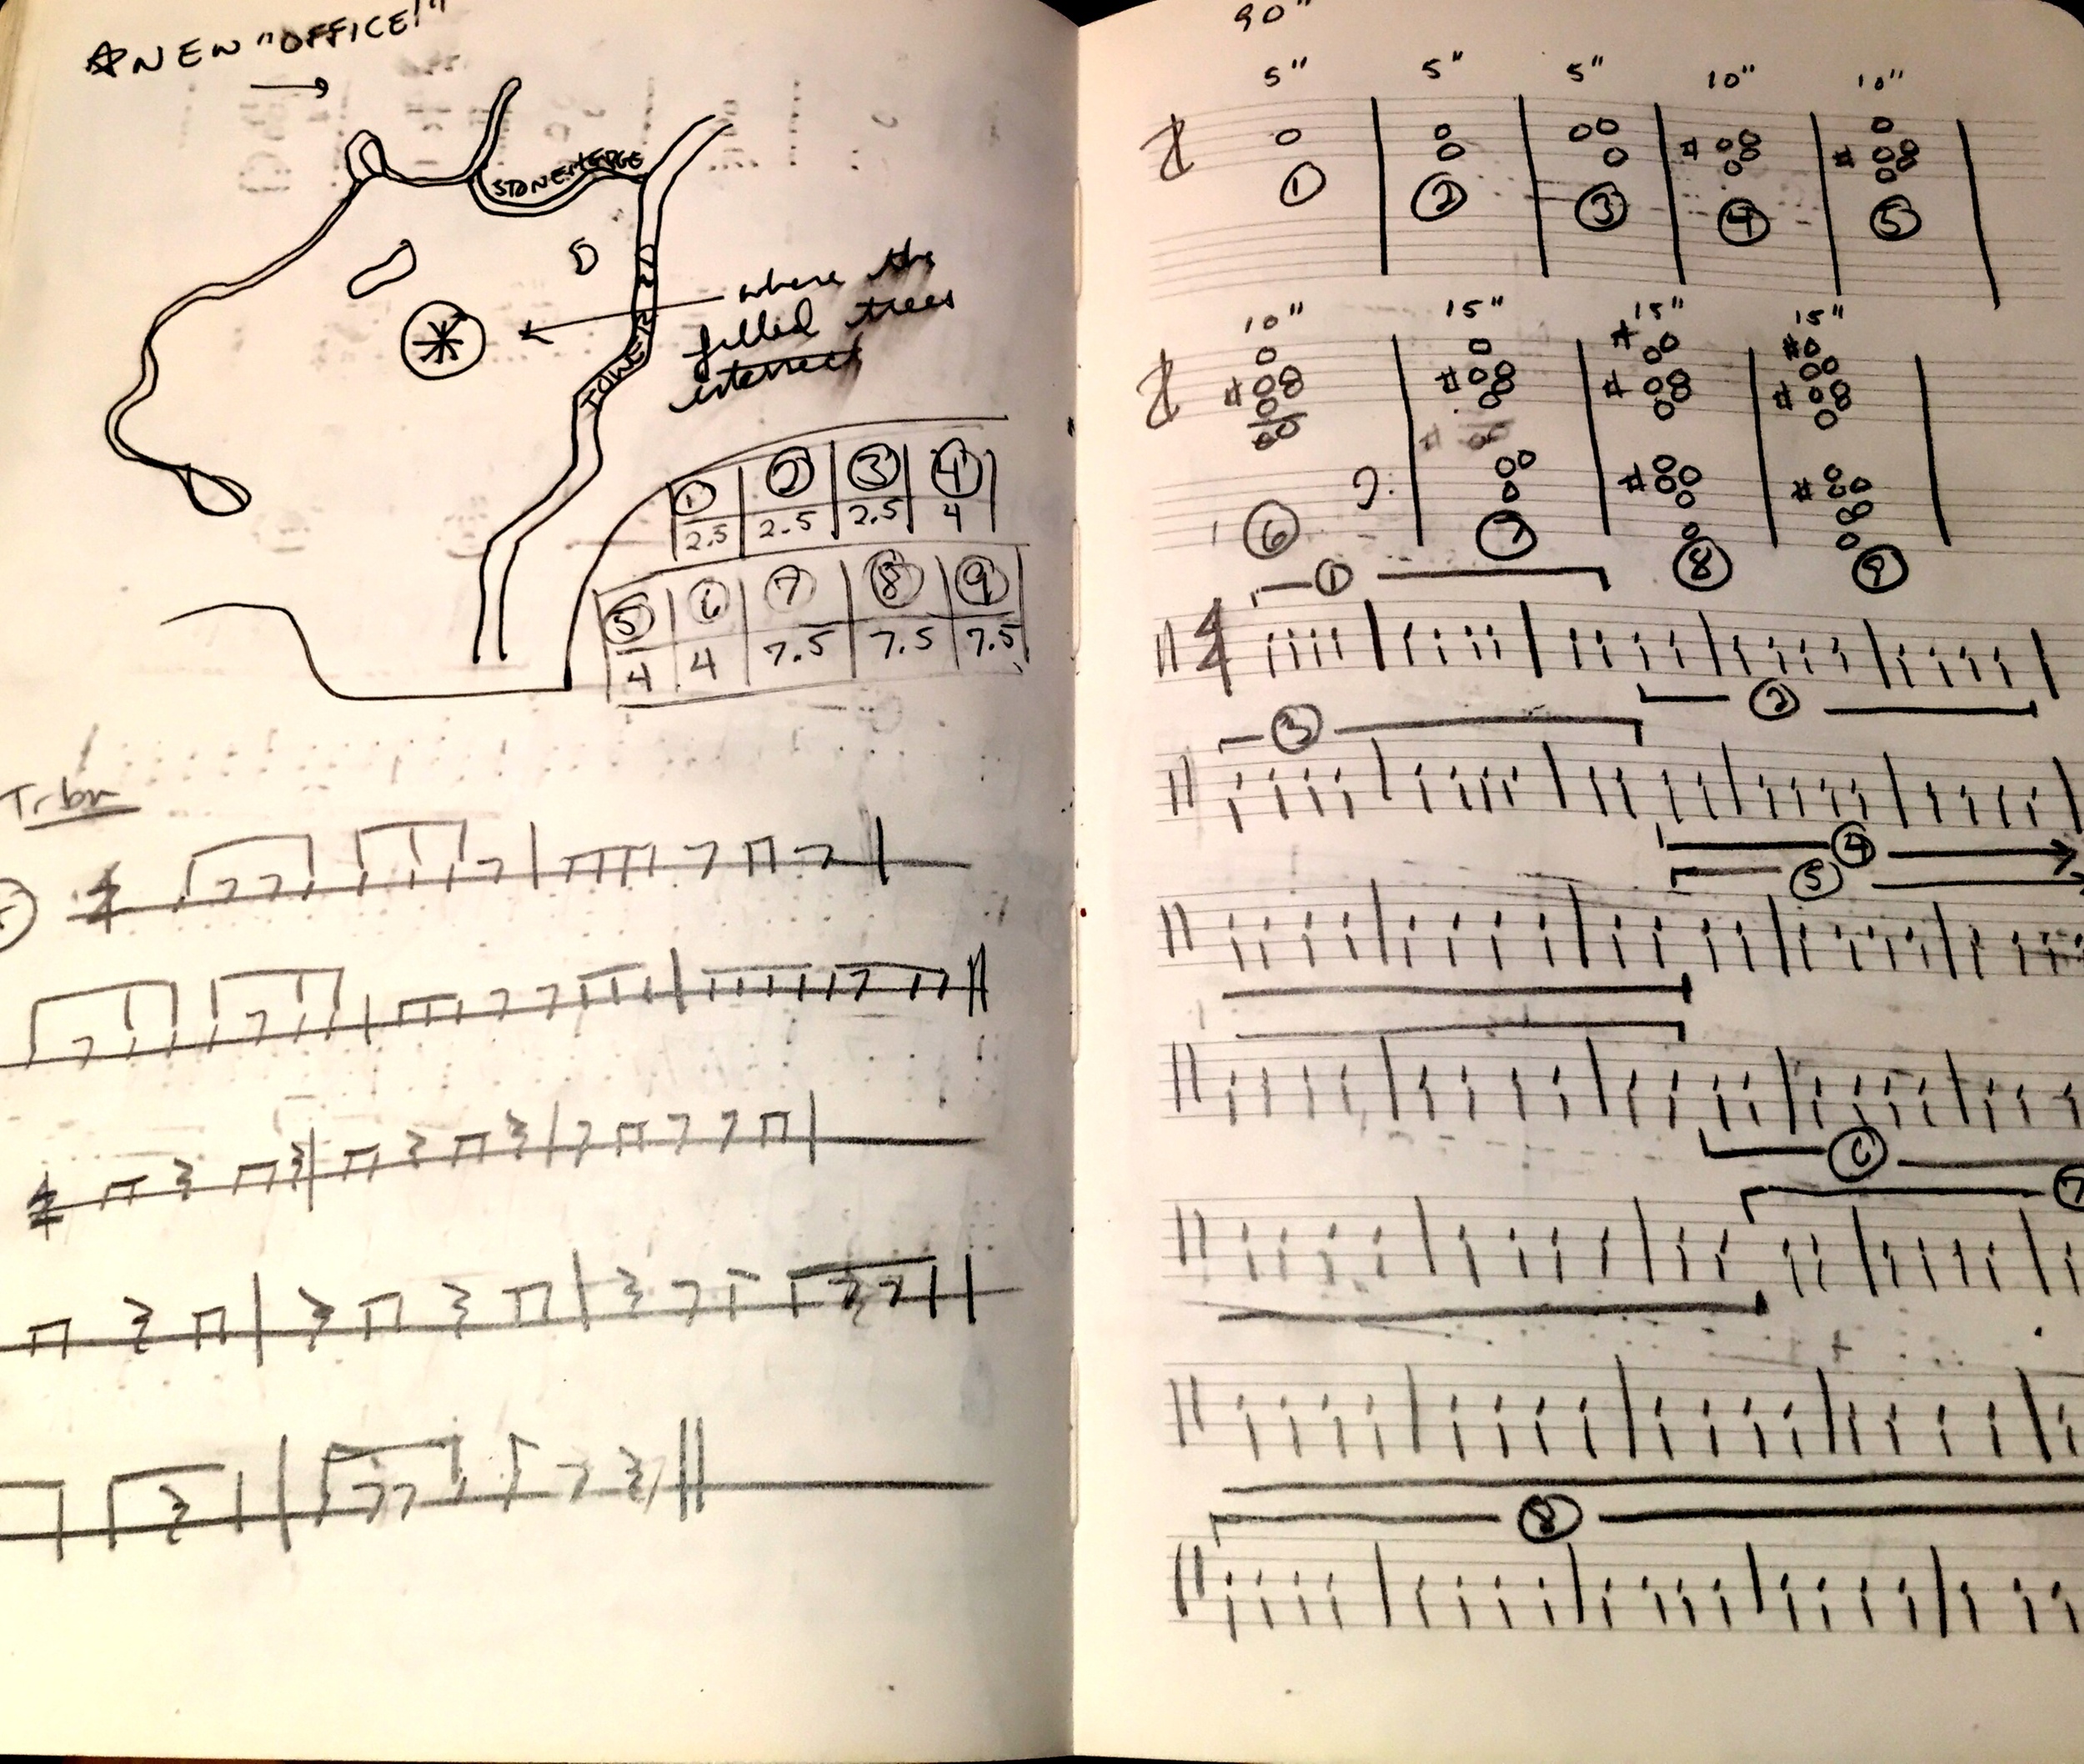 NEW "OFFICE!"
STONEHEDGE
TOWER
where the
felled trees
intersect
1 2 3 4
2.5 2.5 2.5 4
5 6 7 8 9
4 4 7.5 7.5 7.5
Trbn
90"
5" 5" 5" 10" 10"
1 2 3 4 5
10" 15" 15" 15"
6 7 8 9
1
4
4
2
3
4
5
6
7
8